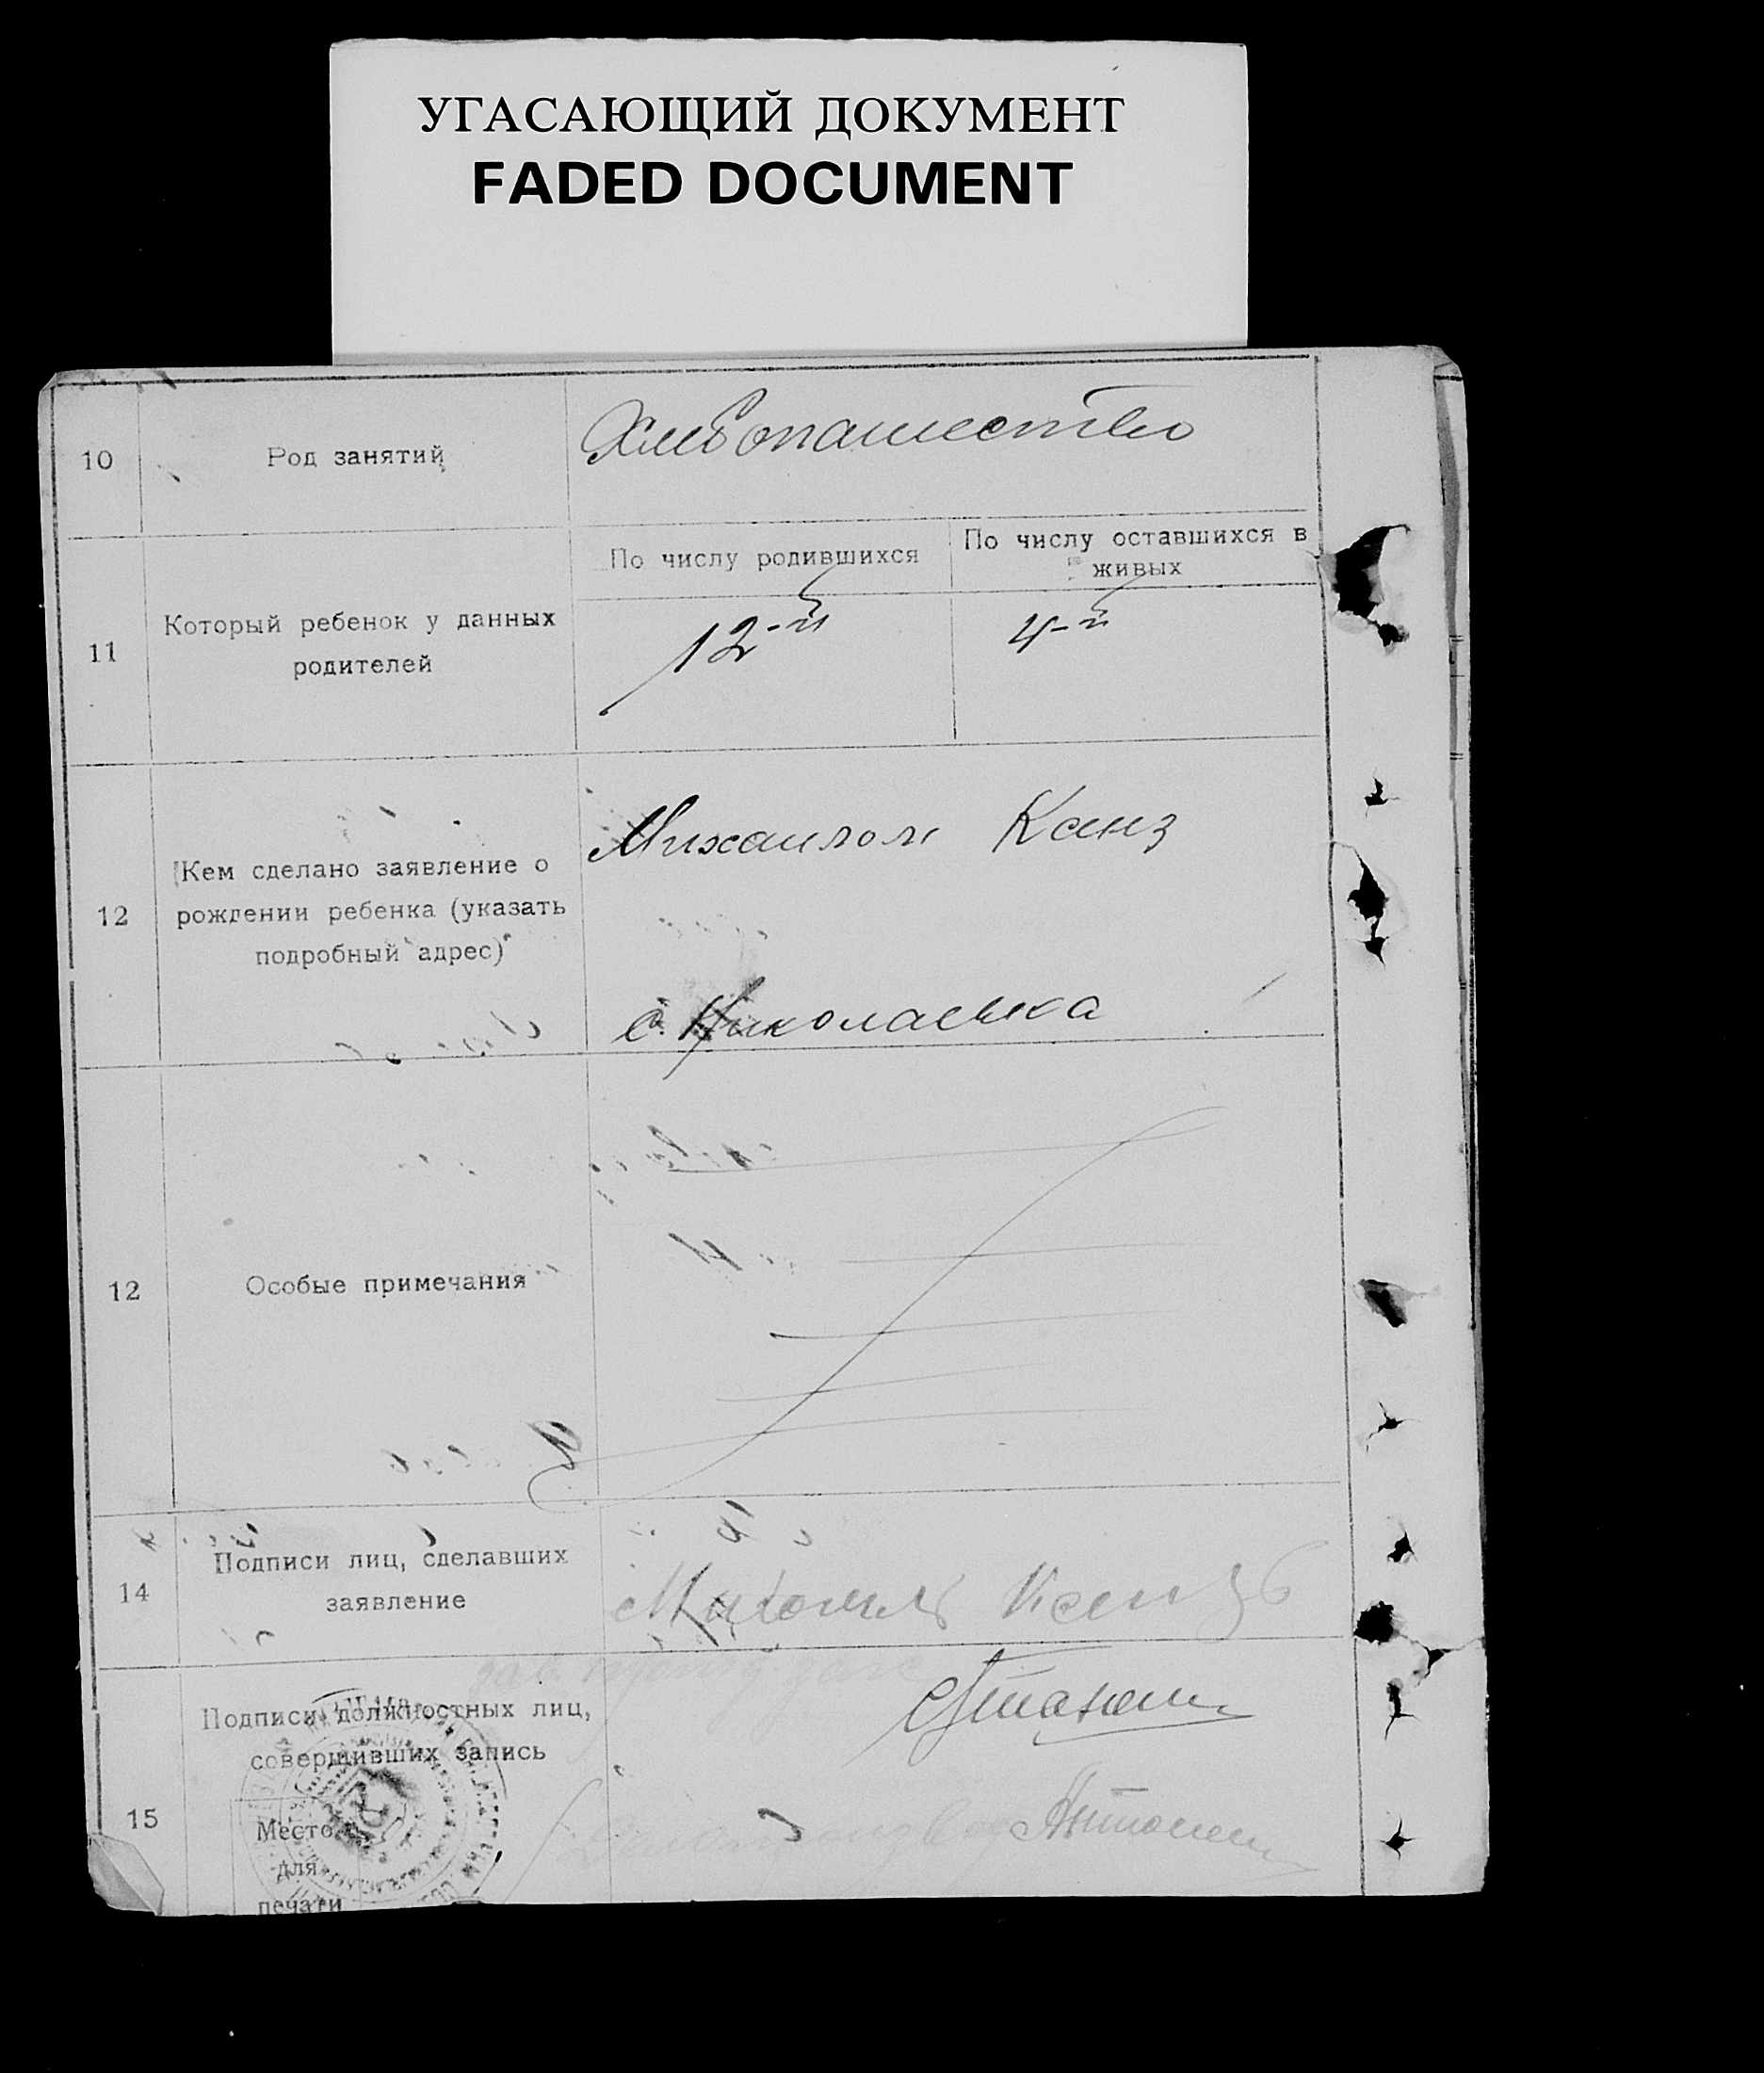 УГАСАЮЩИЙ ДОКУМЕНТ
FADED DOCUMENT
10
Род занятий
Хлебопашество
11
Который ребенок у данных
родителей
По числу родившихся
12-й
По числу оставшихся в
живых
4-й
12
Кем сделано заявление о
рождении ребенка (указать
подробный адрес)
Михаилом Канз
с. Николаевка
12
Особые примечания
14
Подписи лиц, сделавших
заявление
15
Подписи должностных лиц,
совершивших запись
Место
для
печати